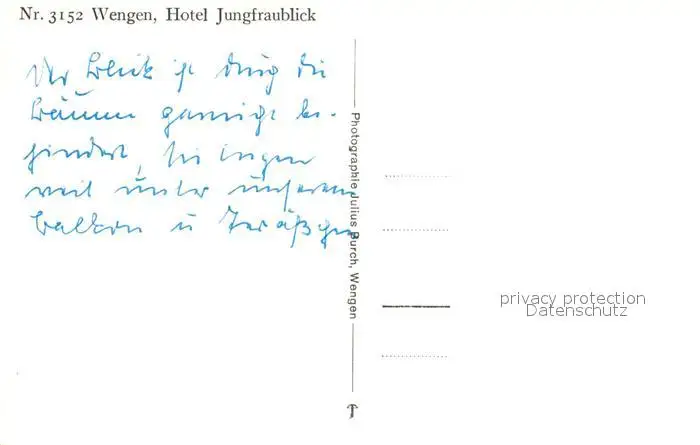 Nr. 3152 Wengen, Hotel Jungfraublick
Der Blick ist durch die
Bäume gar nicht be-
hindert, sie liegen
weit unter unserem
Balkon u
Photographie Julius Burch, Wengen
privacy protection
Datenschutz